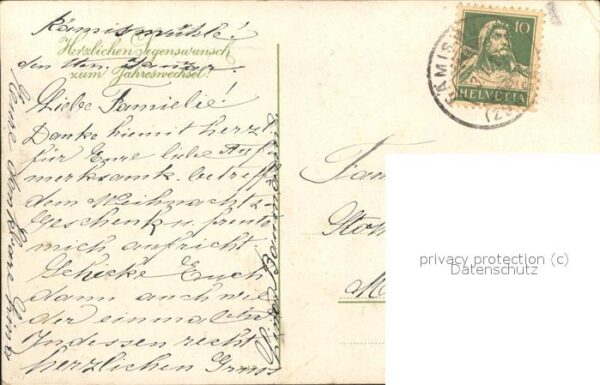 Rämismühle!
Herzlichen Segenswunsch
den 1ten. Januar.
zum Jahreswechsel!
Liebe Famielie!
Danke hiemit herzl
für Eure liebe Auf
merksamk. betreff
dem Weihnachts-
Geschenk u. freute
mich aufricht.
Schicke Euch
dann auch wie
der einmal
Indessen recht
herzlichen Gruss
Eure dankbare
10
HELVETIA
RÄMIS
Fam
M
privacy protection (c)
Datenschutz